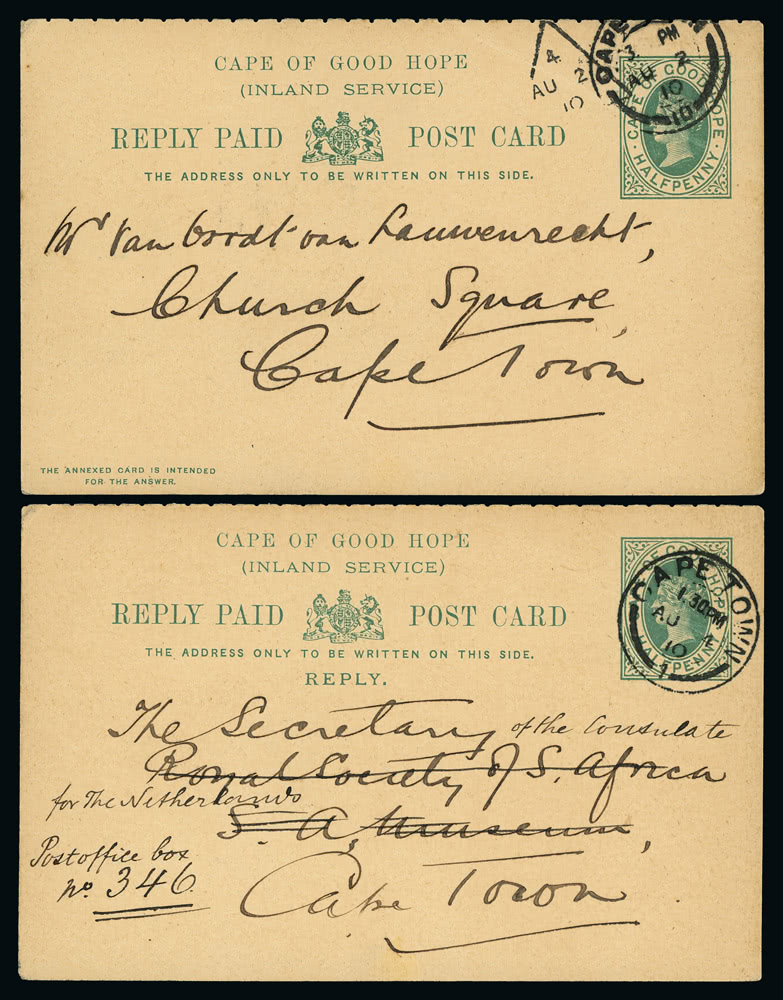 CAPE OF GOOD HOPE
(INLAND SERVICE)
REPLY PAID POST CARD
THE ADDRESS ONLY TO BE WRITTEN ON THIS SIDE.
4
AU 2
10
CAPE TOWN
3 PM
AU 2
10
10
CAPE OF GOOD HOPE
HALFPENNY
Mr Van Oordt van Lauwenrecht,
Church Square,
Cape Town
THE ANNEXED CARD IS INTENDED
FOR THE ANSWER.
CAPE OF GOOD HOPE
(INLAND SERVICE)
REPLY PAID POST CARD
THE ADDRESS ONLY TO BE WRITTEN ON THIS SIDE.
REPLY.
CAPE TOWN
1.30PM
AU 4
10
1
OF GOOD HOPE
HALFPENNY
The Secretary of the Consulate
Royal Society of S. Africa
for The Netherlands
S. A. Museum,
Postoffice box
no. 346.
Cape Town